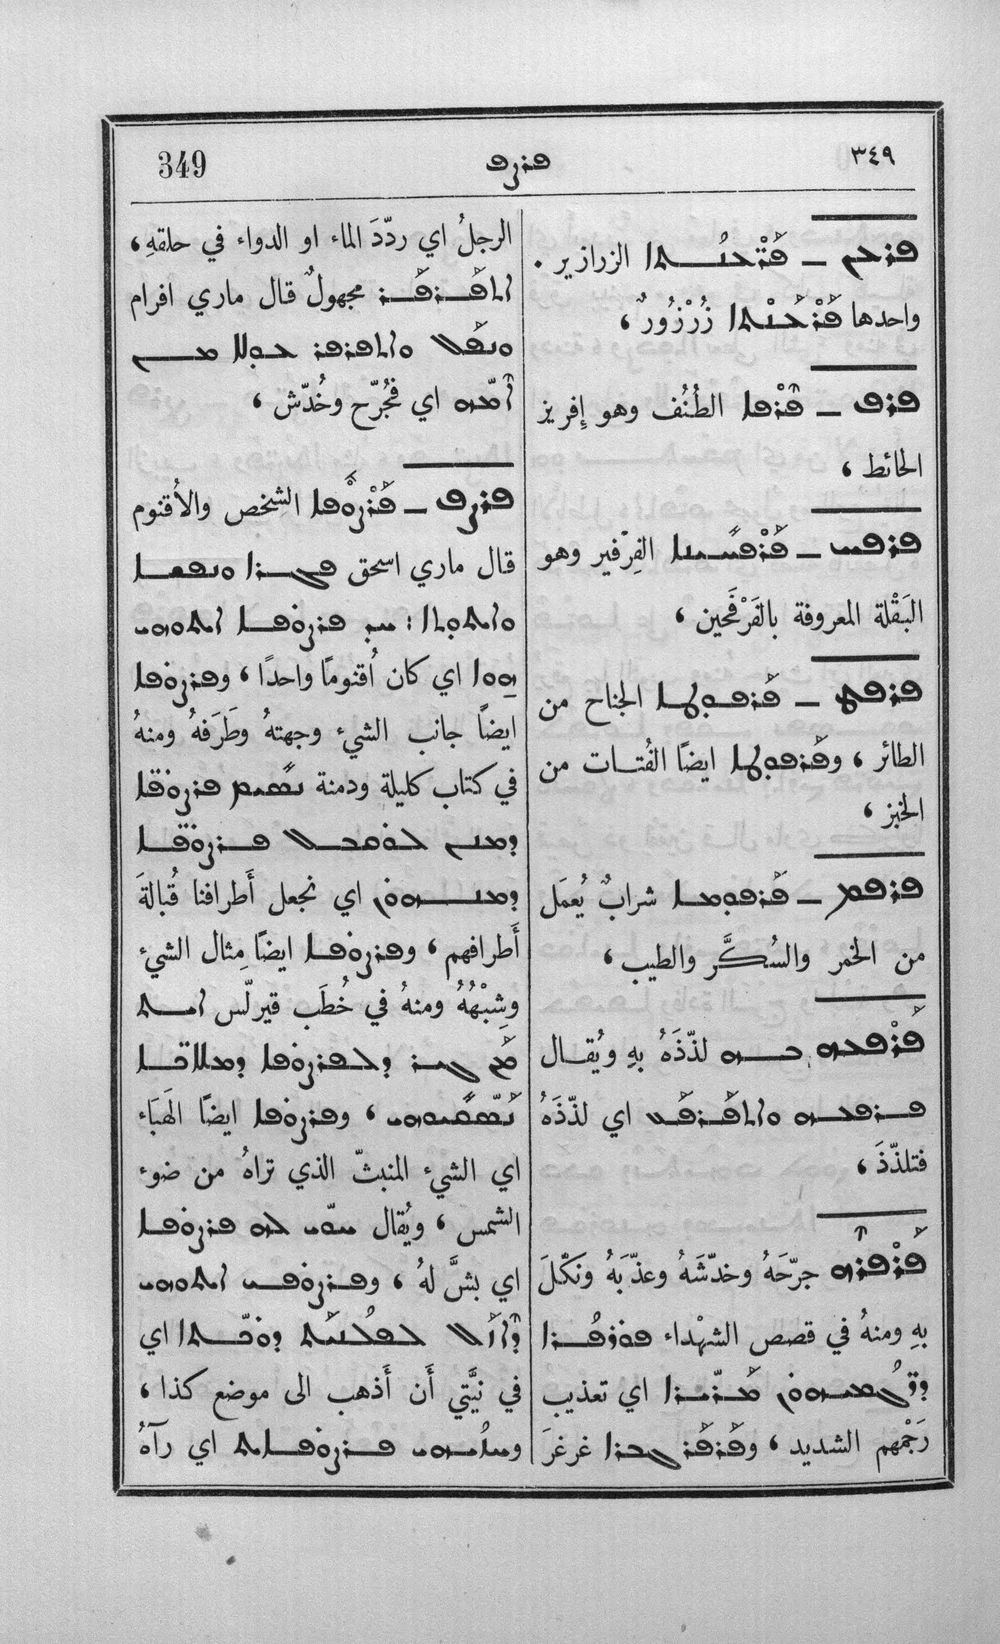 ٣٤٩ ܦܪܨܦ 349
الزرازير .
واحدها زُرْزُورٌ ،
ܦܪܦ — ܦܪܦܐ الطُنُف وهو إِفريز
الحائط ،
ܦܪܦܚ — ܦܪܦܚܝܢܐ الفِرْفير وهو
البَقْلة المعروفة بالفَرْفَحين ،
ܦܪܦܛ — ܦܪܦܘܛܐ الجناح من
الطائر ، وܦܪܦܘܛܐ ايضًا الفُتات من
الخبز ،
ܦܪܦܡ — ܦܪܦܘܡܐ شرابٌ يُعمَل
من الخمر والسُكَّر والطيب ،
ܦܪܦܥܗ ܒܗ لذّذَهُ بهِ ويُقال
ܦܪܦܥܗ ܘܐܬܦܪܦܥ اي لذّذَهُ
فتلذّذَ ،
ܦܪܦܪܗ جرّحَهُ وخدّشَهُ وعذّبَهُ ونَكْلَ
بهِ ومنهُ في قصص الشهْداء ܦܘܪܦܪܐ
ܕܪ̈ܓܡܝܗܘܢ ܡܪܝܪܐ اي تعذيب
رَجْمهم الشديد ، وܦܪܦܪ ܓܒܪܐ غرغرَ
الرجلُ اي ردّدَ الماء او الدواء في حلقهِ ،
ܐܬܦܪܦܪ مجهولٌ قال ماري افرام
ܘܢܦܠ ܘܐܬܦܪܦܪ ܥܘܠܐ ܡܢ
ܐܡܗ اي فجُرّح وخُدّش ،
ܦܪܨܦ — ܦܪܨܘܦܐ الشخص والأُقنوم
قال ماري اسحق ܦܓܪܐ ܘܢܦܫܐ
: ܚܕ ܦܪܨܘܦܐ ܐܝܬܘܗܝ
ܗܘܐ اي كان أُقنومًا واحدًا ، وܦܪܨܘܦܐ
ايضًا جانب الشيء وجهتهُ وطَرَفهُ ومنهُ
في كتاب كليلة ودمنة ܢܣܝܡ ܦܪ̈ܨܘܦܐ
ܕܡܢܢ ܠܘܩܒܠ ܦܪ̈ܨܘܦܐ
ܕܡܢܗܘܢ اي نجعل أَطرافنا قُبالةَ
أَطرافهم ، وܦܪܨܘܦܐ ايضًا مِثال الشيء
وشِبْهُهُ ومنهُ في خُطَب قيرلّس ܐܝܬ
ܡܢ ܓܝܪ ܕܒܦܪܨܘܦܐ ܕܡܠܐܟ̈ܐ
ܢܣܝܡܘܗܝ ، وܦܪܨܘܦܐ ايضًا الهَبَاء
اي الشيء المنبثّ الذي تراهُ من ضوء
الشمس ، ويُقال ܚܘܝ ܠܗ ܦܪܨܘܦܐ
اي بشَّ لهُ ، وܦܪܨܘܦܝ ܐܝܬܘܗܝ
ܕܐܙܠ ܠܦܠܢܝܬ ܕܘܟܬܐ اي
في نيَّتي أَن أَذهب الى موضع كذا ،
وܚܙܝܗܝ ܦܪܨܘܦܐܝܬ اي رآهُ